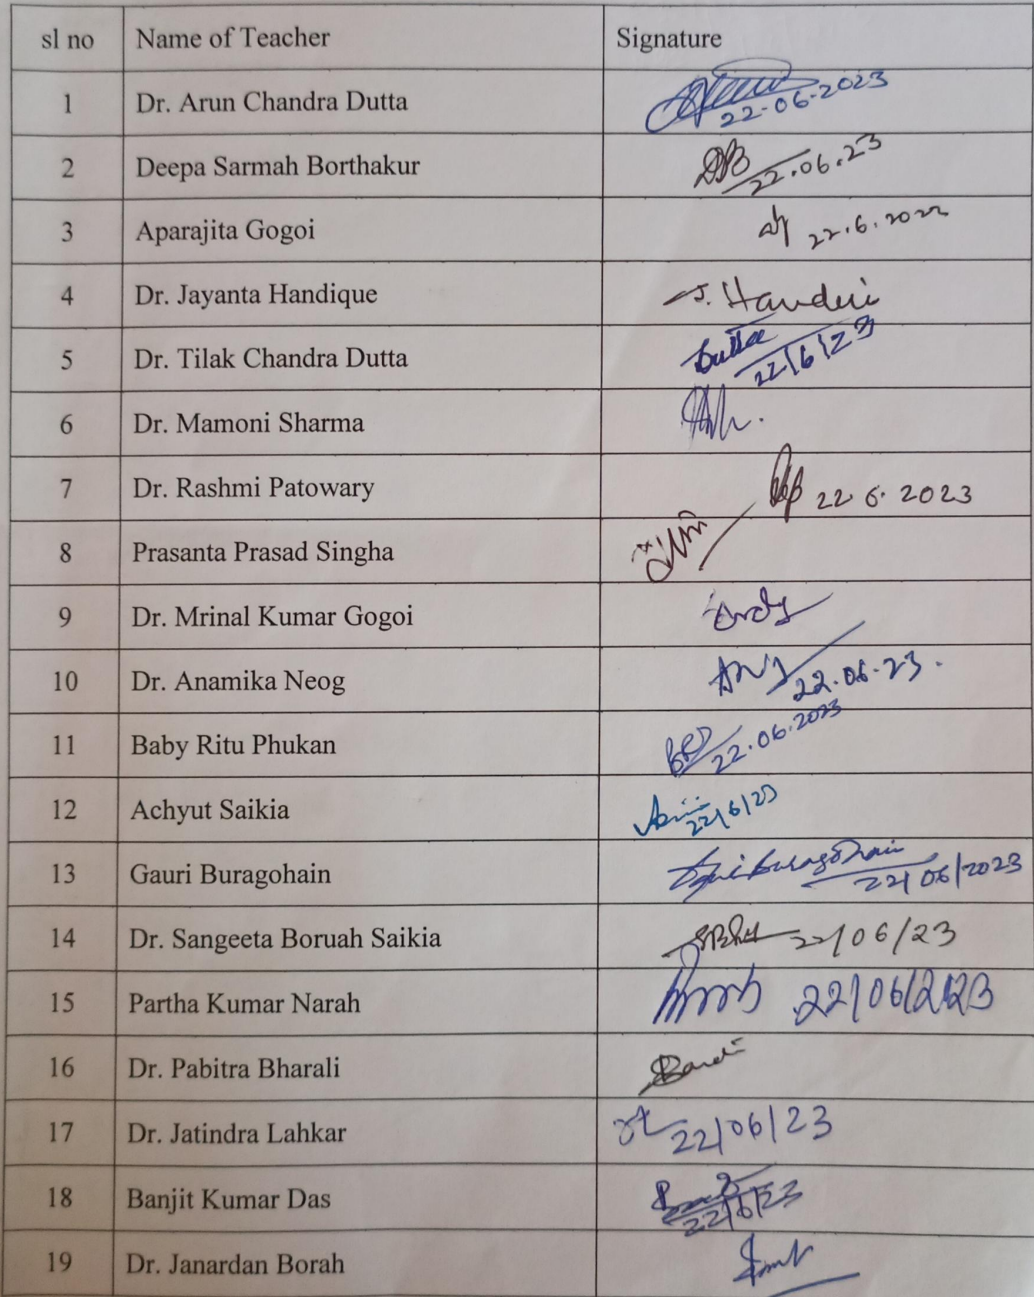 sl no Name of Teacher Signature
1 Dr. Arun Chandra Dutta 22-06-2023
2 Deepa Sarmah Borthakur DB 22.06.23
3 Aparajita Gogoi 22.6.2022
4 Dr. Jayanta Handique J.
5 Dr. Tilak Chandra Dutta Dutta 22/6/23
6 Dr. Mamoni Sharma
7 Dr. Rashmi Patowary 22.6.2023
8 Prasanta Prasad Singha
9 Dr. Mrinal Kumar Gogoi
10 Dr. Anamika Neog 22.06.23.
11 Baby Ritu Phukan 22.06.2023
12 Achyut Saikia 22/6/23
13 Gauri Buragohain Buragohain 22/06/2023
14 Dr. Sangeeta Boruah Saikia 22/06/23
15 Partha Kumar Narah
16 Dr. Pabitra Bharali
17 Dr. Jatindra Lahkar 22/06/23
18 Banjit Kumar Das 22/6/23
19 Dr. Janardan Borah